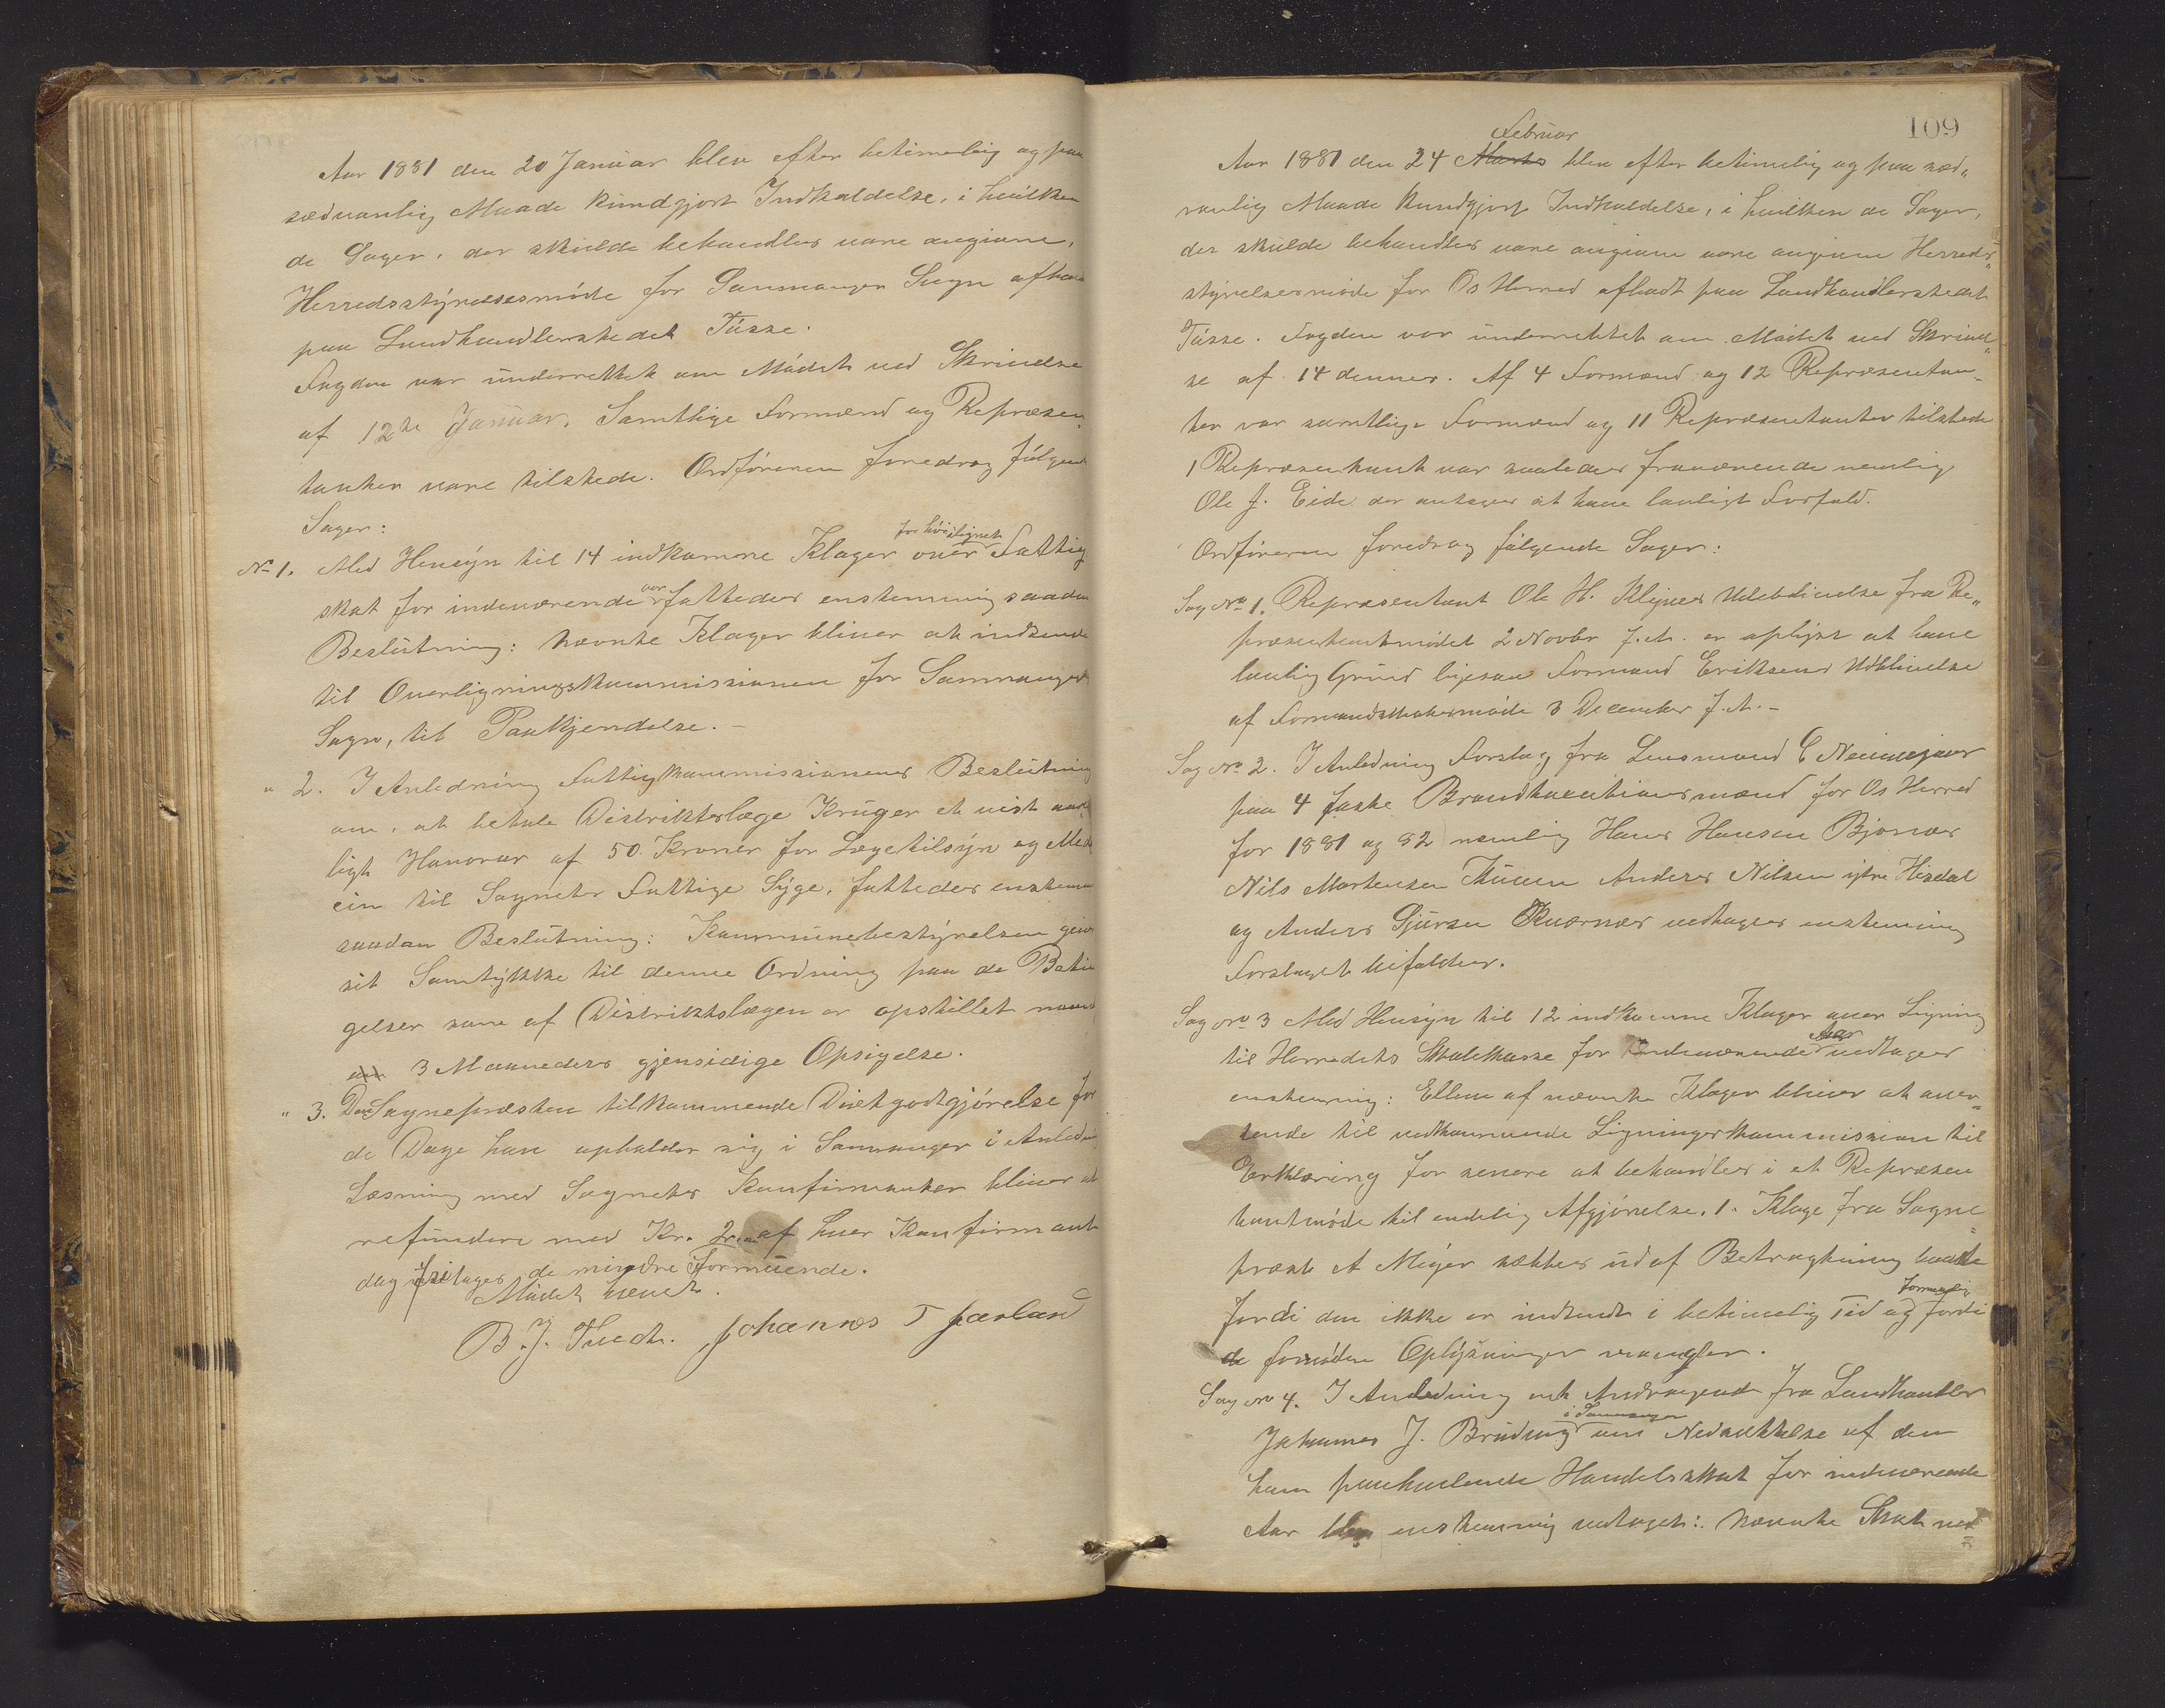 Aar 1881 den 20 Januar blev efter betimelig og paa
sædvanlig Maade kundgjort Indkaldelse, i hvilken
de Sager, der skulde behandles vare angivne,
Herredsstyrelsesmøde for Samnanger Sogn afhol
paa Landhandlerstedet Tøsse.
Fogden var underrettet om Mødet ved Skrivelse
af 12te Januar. Samtlige Formænd og Repræsen„
tanter vare tilstede. Ordføreren foredrog følgende
Sager:
No 1. Med Hensyn til 14 indkomne Klager over for høi ilignet Fattig
skat for indeværende Aar fattedes enstemmig saadan
Beslutning: Nævnte Klager bliver at indsende
til Overligningskommissionen for Samnanger
Sogn, til Paakjendelse. –
" 2. I Anledning Fattigkommissionens Beslutning
om, at betale Distriktslæge Krüger et vist aar
ligt Honorar af 50 Kroner for Lægetilsyn og Med
cin til Sognets Fattige Syge, fattedes enstemm
saadan Beslutning: Kommunebestyrelsen giver
sit Samtykke til denne Ordning paa de Betin
gelser som af Distriktslægen er opstillet
3 Maaneders gjensidige Opsigelse.
" 3. Den Sognepræsten tilkommende Diætgodtgjørelse for
de Dage han opholder sig i Samnanger i Anledni
Læsning med Sognets Konfirmanter bliver at
refundere med Kr. 2 af hver Konfirmant
dog fritages de mindre Formuende.
Mødet hævet.
B. J. Johannes T
109
Aar 1881 den 24 Februar Marts blev efter betimelig og paa sæd„
vanlig Maade kundgjort Indkaldelse, i hvilken de Sager,
der skulde behandles vare angivne vare angivne Herreds„
styrelsesmøde for Os Herred afholdt paa Landhandlerstedet
Tøsse. Fogden var underrettet om Mødet ved Skrivel„
se af 14 dennes. Af 4 Formænd og 12 Repræsentan„
ter var samtlige Formænd og 11 Repræsentanter tilstede
1 Repræsentant var saaledes fraværende nemlig
Ole J. Eide der antages at have lovligt Forfald.
Ordføreren foredrog følgende Sager:
Sag No 1. Repræsentant Ole H. Udeblivelse fra Re„
præsentantmødet 2 Novbr f. A. er oplyst at have
lovlig Grund ligesaa Formand Eriksens Udblivelse
af Formandskabsmøde 3 December f. A. –
Sag No 2. I Anledning Forslag fra Lensmand
paa 4 faste Brandtaxationsmænd for Os Herred
for 1881 og 82 nemlig Hans Hansen Bjønnes
Nils Mortensen Thuen Anders Nilsen ytre Hisdal
og Anders Sjursen vedtages enstemmig
Forslaget bifaldes.
Sag No 3 Med Hensyn til 12 indkomne Klager over Ligning
til Herredets Skolekasse for indeværende Aar vedtages
enstemmig: Elleve af nævnte Klager bliver at over„
sende til vedkommende Ligningskommission til
Erklæring for senere at behandles i et Repræsen
tantmøde til endelig Afgjørelse. 1. Klage fra Sogne„
præst A Meyer sættes ud af Betragtning baade
fordi den ikke er indsendt i betimelig Tid og fordi
de fornødne Oplysninger mangler.
Sag No 4. I Anledning et Andragende fra Landhandler
Johannes J. Brudvig i Samnanger om Nedsættelse af den
ham paahvilende Handelsskat for indeværende
Aar blev enstemmig vedtaget: Nævnte Skat ned„